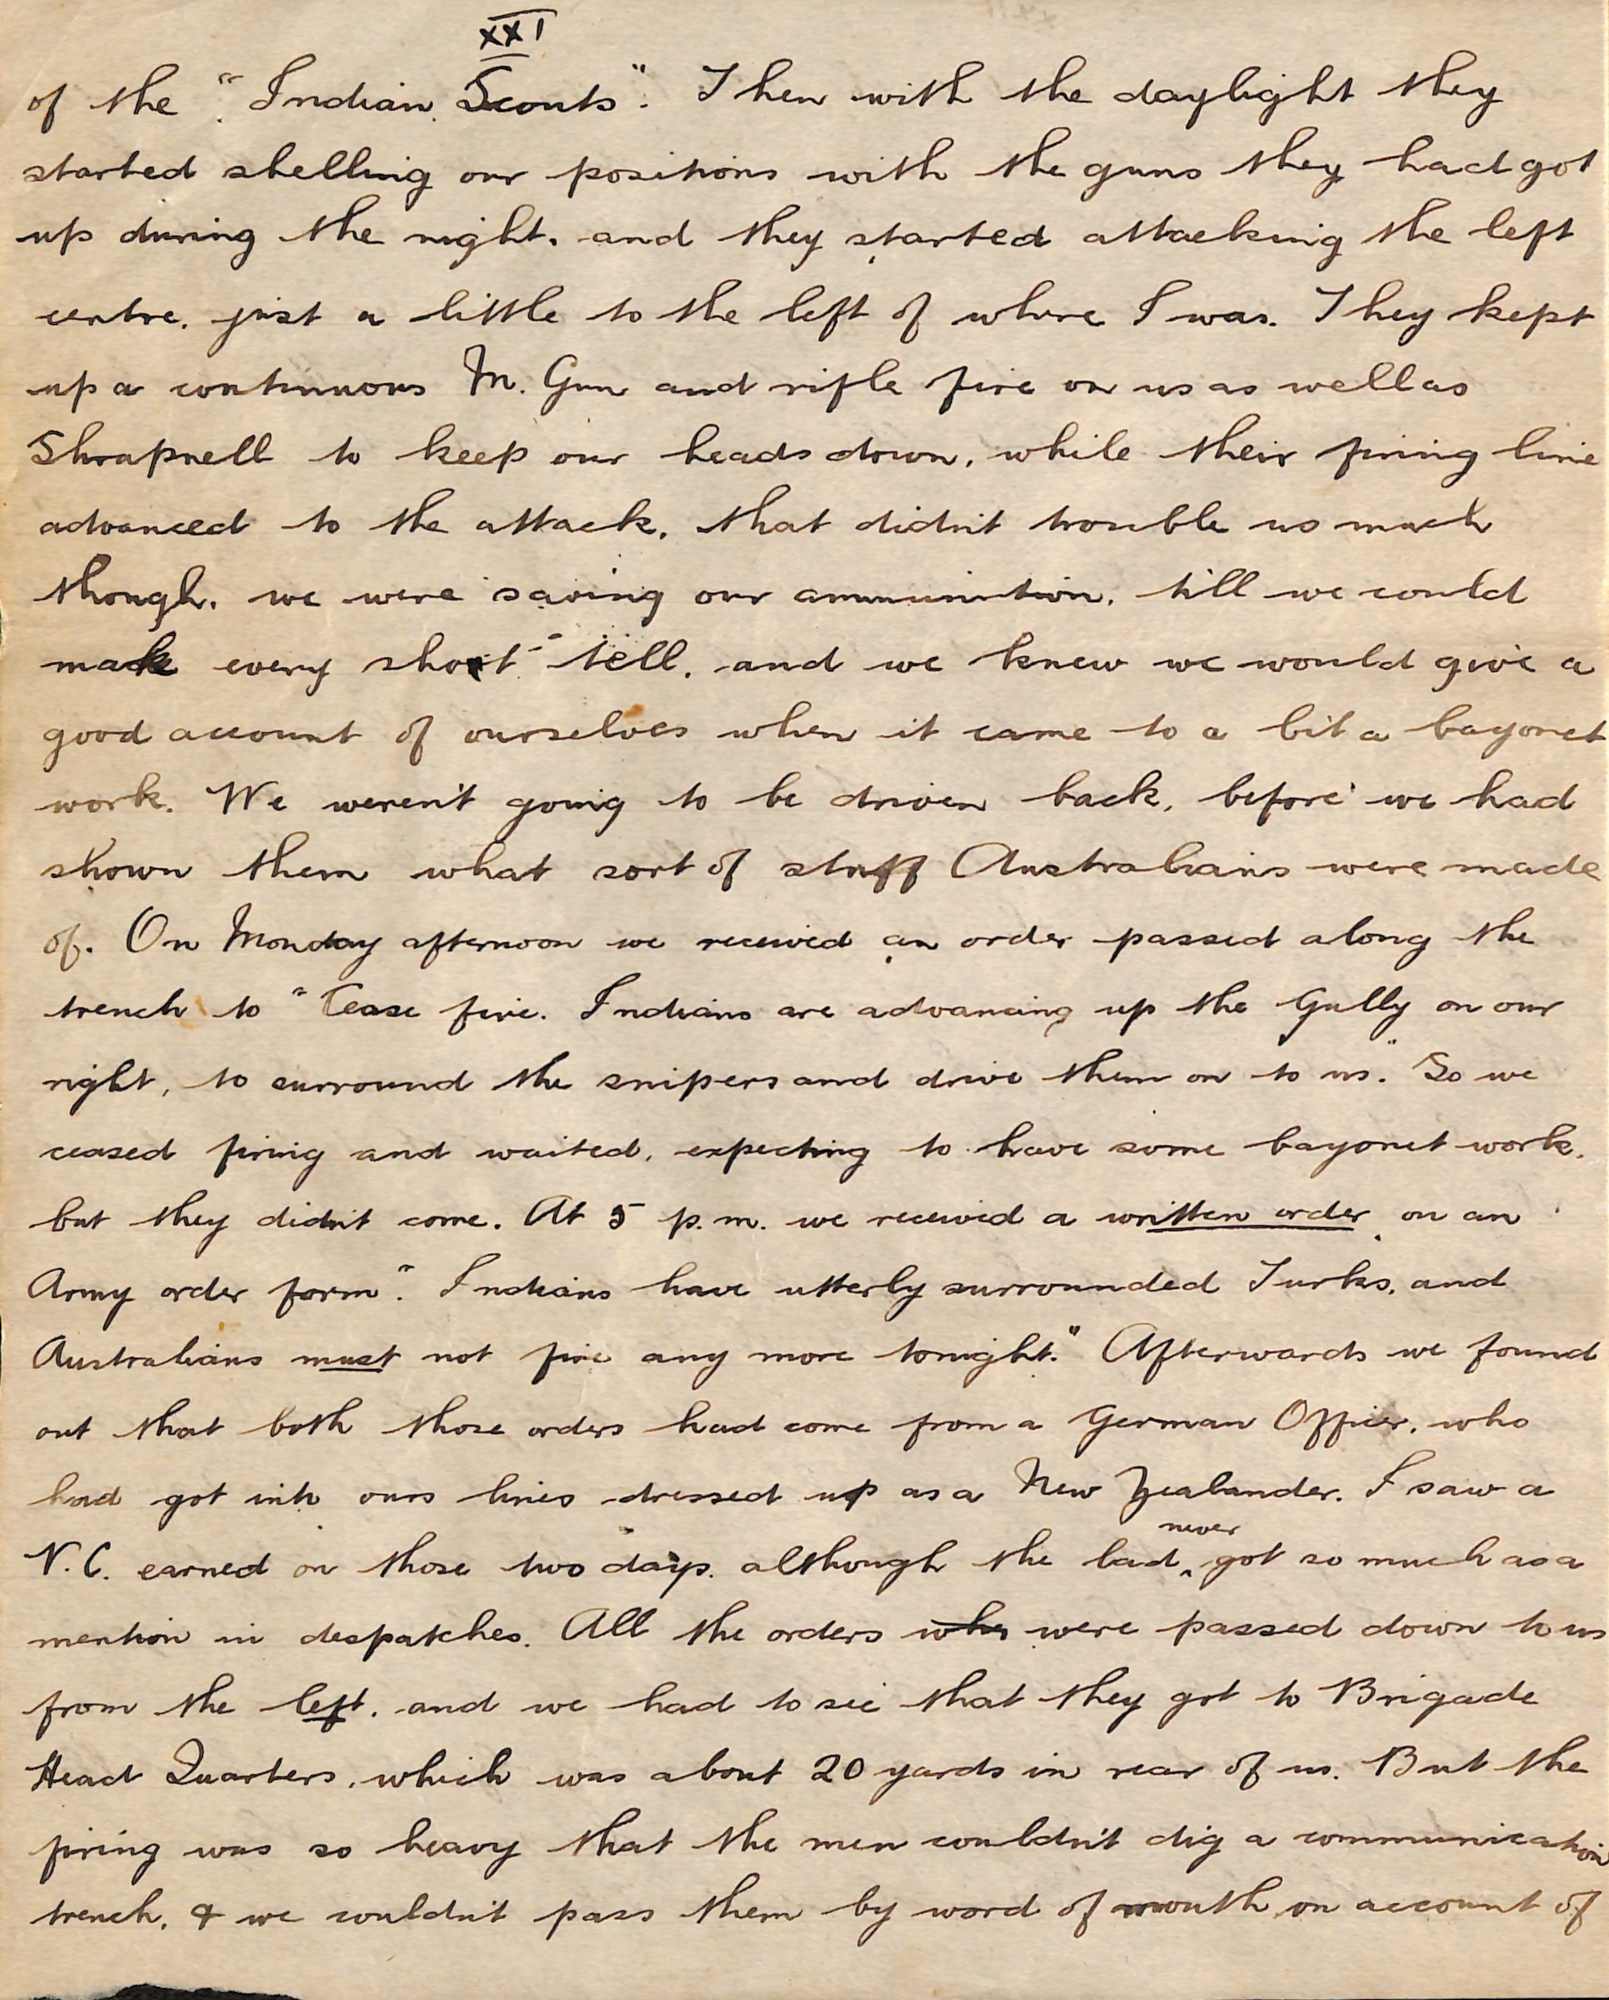 XXI
of the "Indian Scouts". Then with the daylight they
started shelling our positions with the guns they had got
up during the night. and they started attacking the left
centre. just a little to the left of where I was. They kept
up a continuous M. Gun and rifle fire on us as well as
Shrapnell to keep our heads down, while their firing line
advanced to the attack. that didn't trouble us much
though. we were saving our ammunition. till we could
make every shot "tell. and we knew we would give a
good account of ourselves when it came to a bit a bayonet
work. We weren't going to be driven back, before we had
shown them what sort of stuff Australians were made
of. On Monday afternoon we received an order passed along the
trench to "Cease fire. Indians are advancing up the Gully on our
right, to surround the snipers and drive them on to us." So we
ceased firing and waited, expecting to have some bayonet work.
but they didn't come. At 5 p.m. we received a written order on an
Army order form". Indians have utterly surrounded Turks. and
Australians must not fire any more tonight." Afterwards we found
out that both those orders had come from a German Officer, who
had got into ours lines dressed up as a New Zealander. I saw a
V.C. earned on those two days. although the lad never got so much as a
mention in despatches. All the orders who were passed down to us
from the left. and we had to see that they got to Brigade
Head Quarters. which was about 20 yards in rear of us. But the
firing was so heavy that the men couldn't dig a communication
trench. & we couldn't pass them by word of mouth on account of